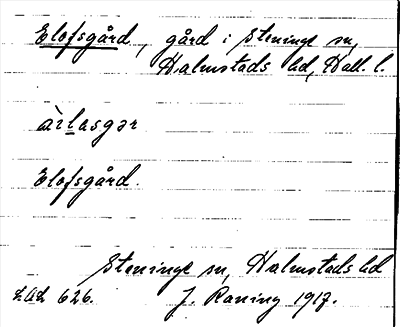 Elofsgård, gård i Steninge sn,
Halmstads hd, Hall. l.
àrlasgər
Elofsgård.
Steninge sn, Halmstads hd
LAL 626. J. Raning 1917.